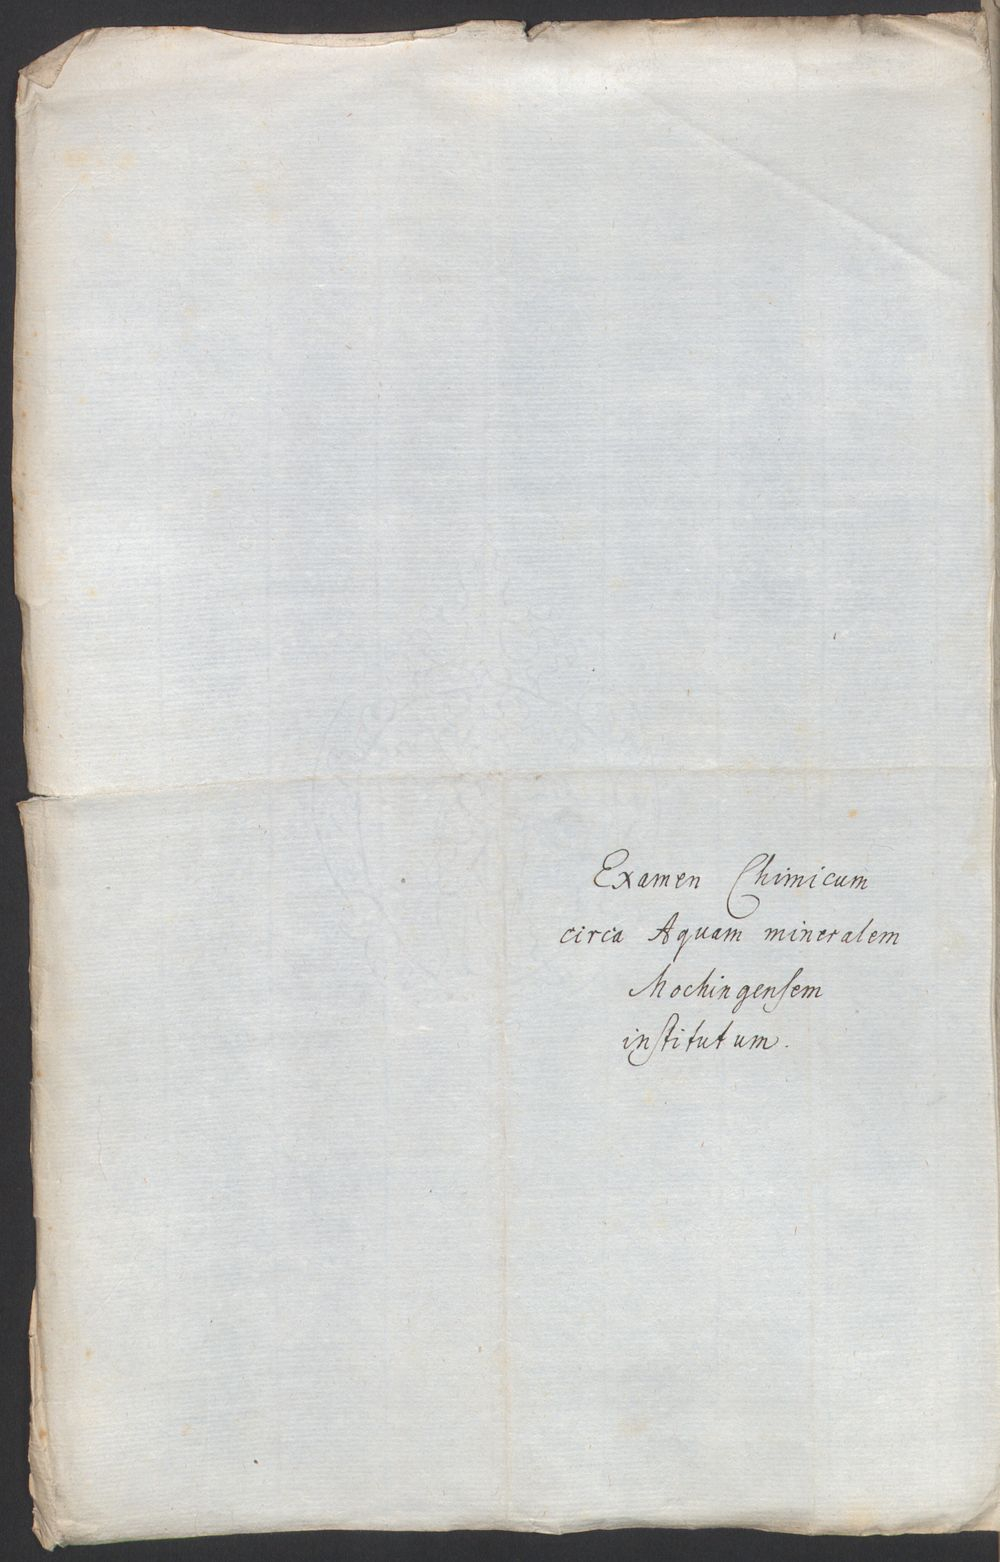 Examen Chimicum
circa Aquam mineralem
Mochingenſem
inſtitutum.